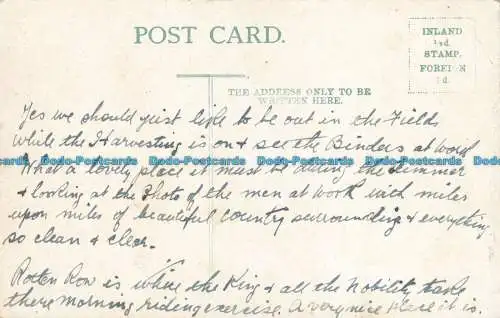 POST CARD.
INLAND
½d.
STAMP.
FOREIGN
1d.
THE ADDRESS ONLY TO BE
WRITTEN HERE.
Yes we should just like to be out in the Field
while the Harvesting is on & see the Binders at work
What a lovely place it must be during the summer
& looking at the Photo of the men at work with miles
upon miles of beautiful country surrounding & everything
so clean & clear.
Rotten Row is where the King & all the Nobility take
there morning riding exercise. A very nice place it is.
Dodo-Postcards Dodo-Postcards Dodo-Postcards Dodo-Postcards Dodo-Postcards